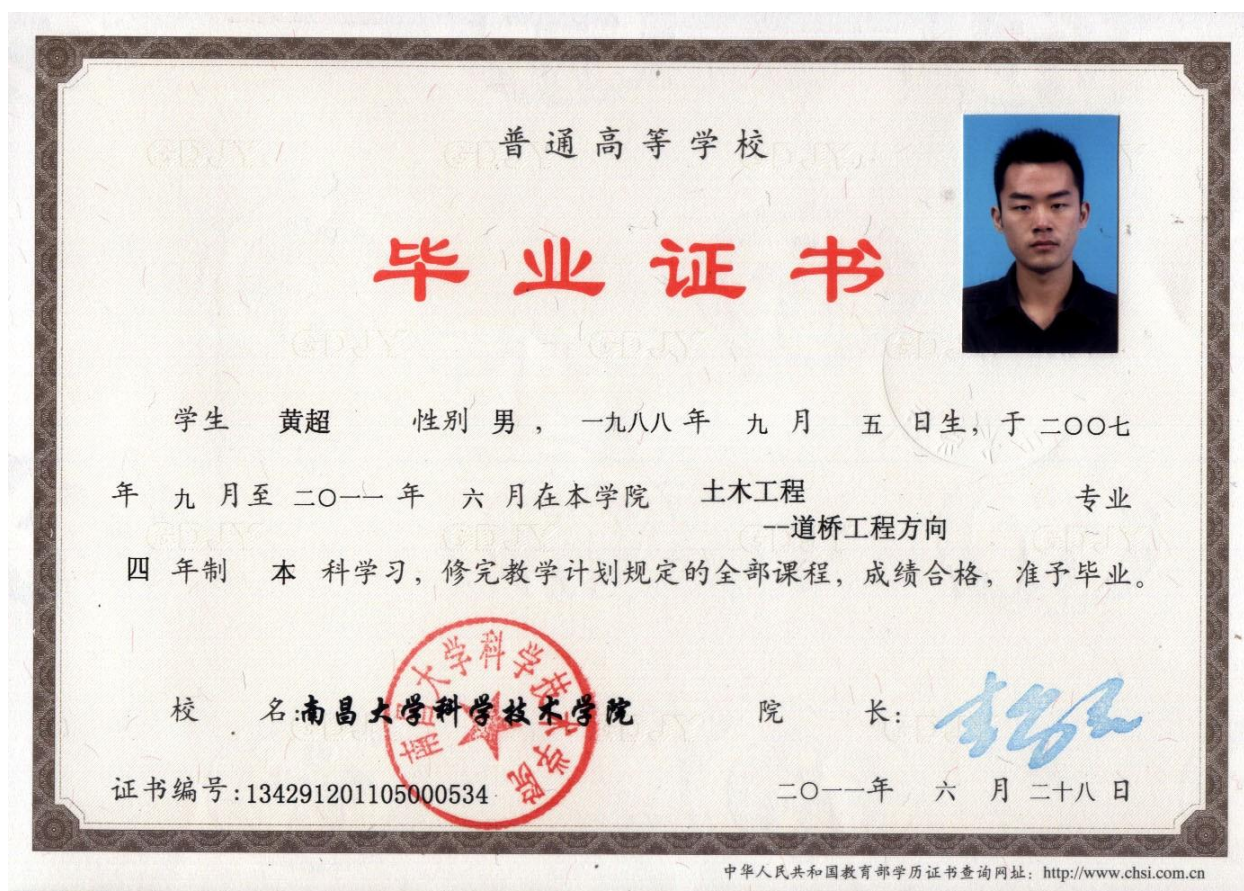 普通高等学校
毕业证书
学生 黄超 性别 男, 一九八八年 九月 五日生, 于二〇〇七
年 九月至 二〇一一年 六月在本学院 土木工程 专业
--道桥工程方向
四年制 本科学习, 修完教学计划规定的全部课程, 成绩合格, 准予毕业。
南昌大学科学技术学院
校 名:南昌大学科学技术学院 院 长:
证书编号:134291201105000534 二〇一一年 六月 二十八日
中华人民共和国教育部学历证书查询网址: http://www.chsi.com.cn